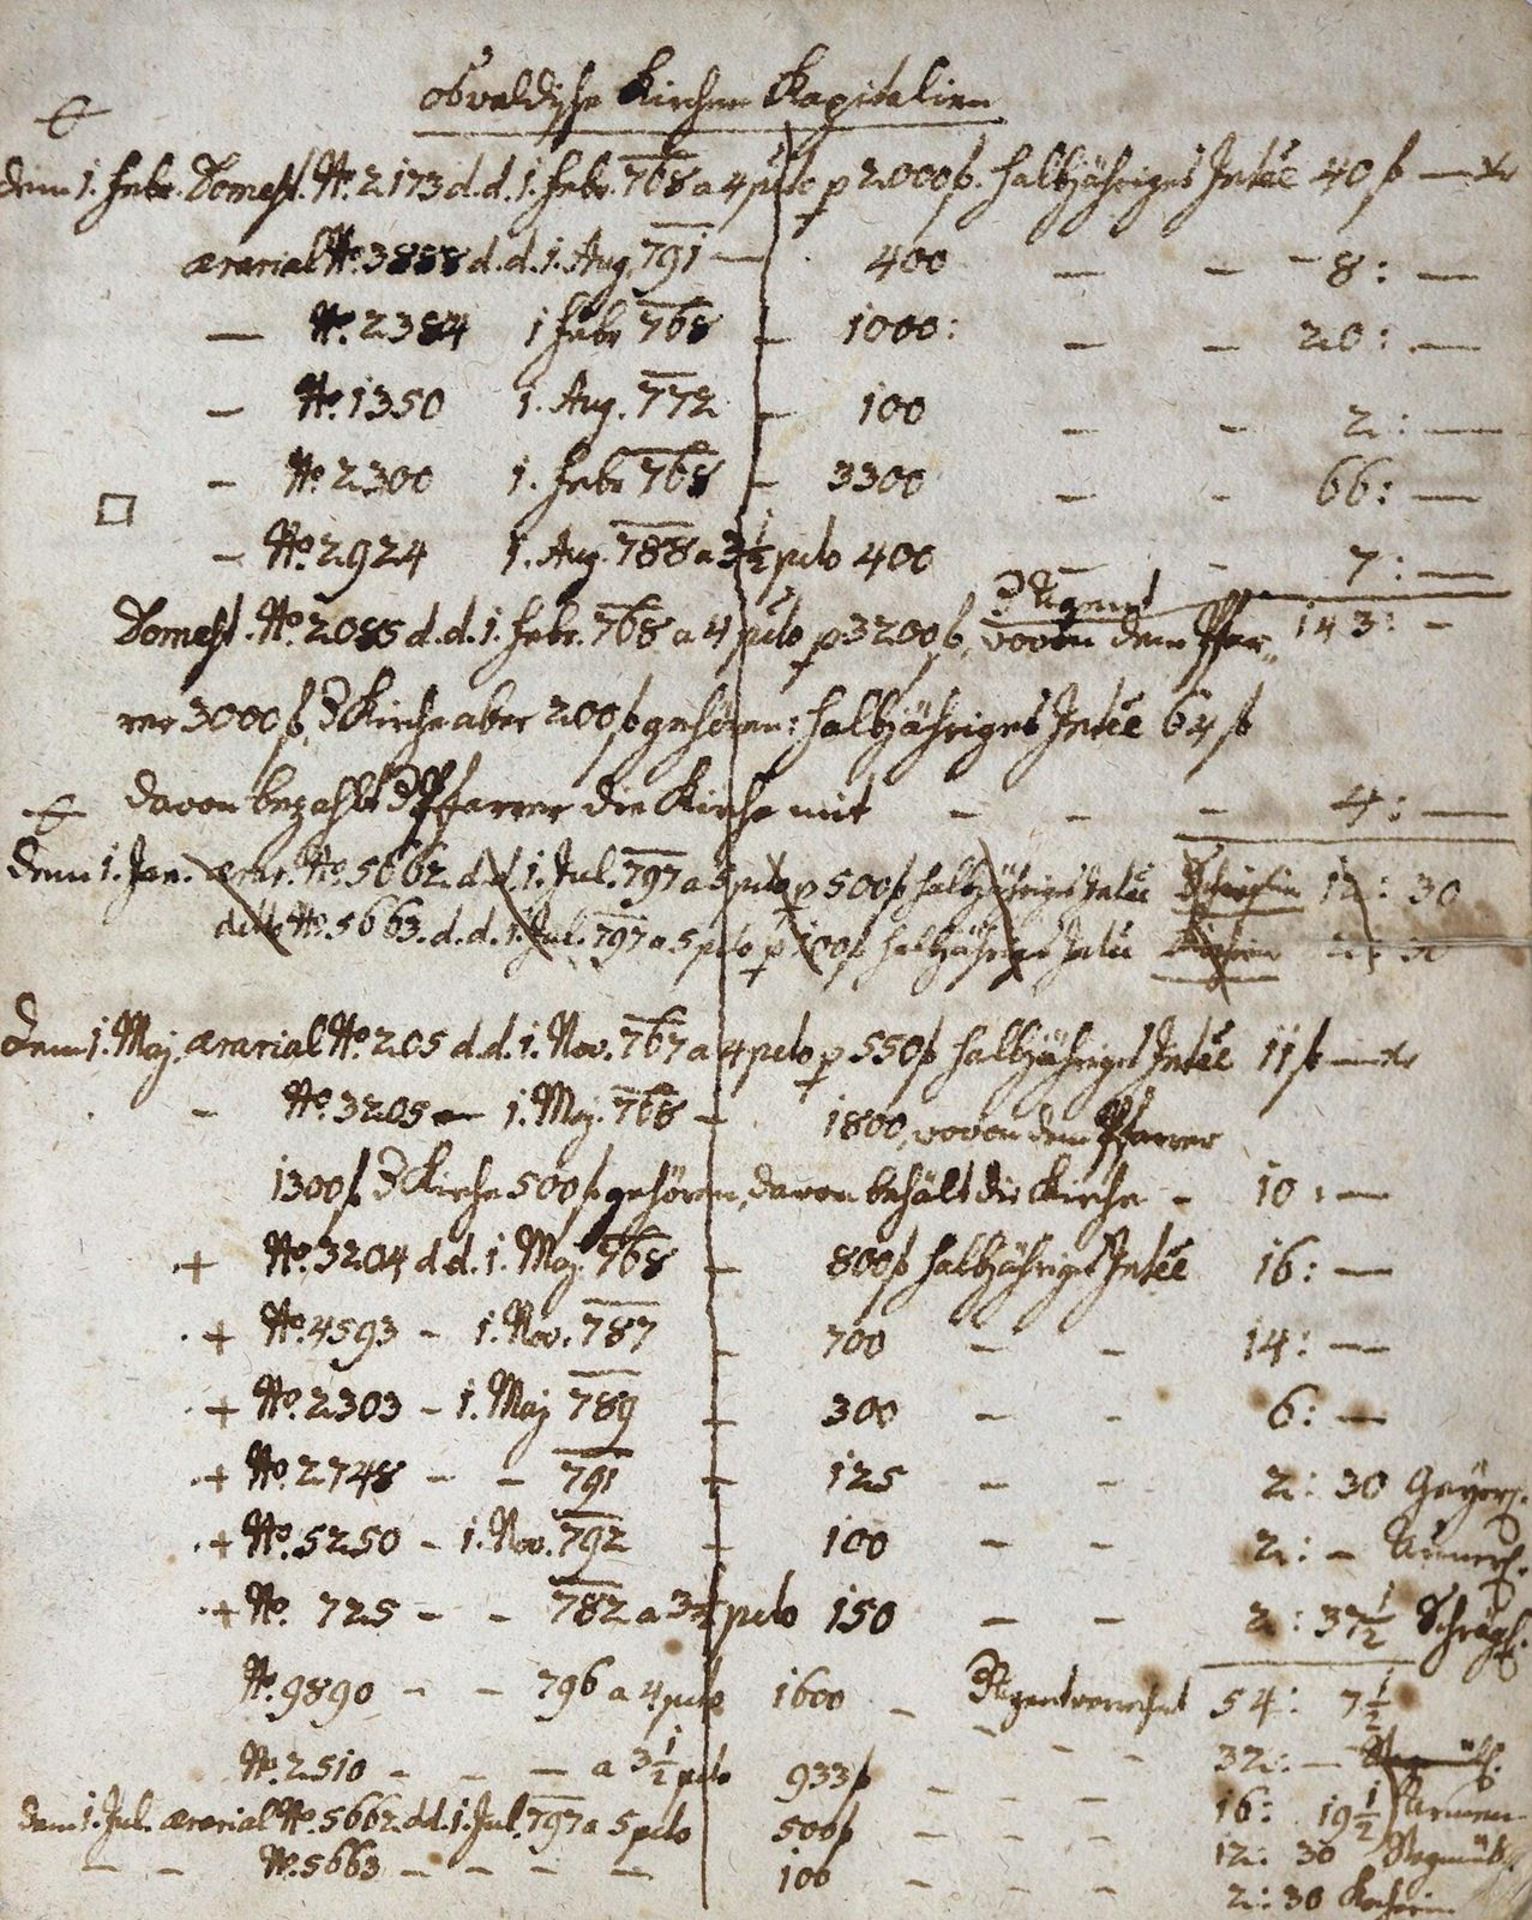 Osvaldische Kirchen Kapitalien
dem 1. Febr. Domest. No. 2173 d. d. 1. Febr. 768 a 4 pcto p 2000 f. halbjähriges Intee 40 f — xr
ærarial No. 3888 d. d. 1. Aug. 791 — 400 — — 8: —
— No. 2384 1 Febr 768 — 1000: — — 20: —
— No. 1350 1. Aug. 772 — 100 — — 2: —
— No. 2300 1. Febr 768 — 3300 — — 66: —
— No. 2924 1. Aug. 788 a 3 1/2 pcto 400 — — 7: —
Domest. No. 2085 d. d. 1. Febr. 768 a 4 pcto p 3200 f, wovon dem Pfar- 143: —
rer 3000 f, d Kirche aber 200 f gehören: halbjähriges Intee 64 f
davon bezahlt d Pfarrer die Kirche mit — — — 4: —
dem 1. Jan. ærar. No. 5662 d. d. 1. Jul. 797 a 5 pcto p 500 f halbjähriges Intee 12: 30
detto No. 5663. d. d. 1. Jul. 797 a 5 pcto p 100 f halbjähriges Intee 2: 30
dem 1. Maj. ærarial No. 205 d. d. 1. Nov. 767 a 4 pcto p 550 f halbjähriges Intee 11 f — xr
— No. 3205 — 1. Maj. 768 — 1800, wovon dem Pfarrer
1300 f d Kirche 500 f gehören, davon behält die Kirche — 10: —
+ No. 3204 d d. 1. Maj. 768 — 800 f halbjähriges Intee 16: —
+ No. 4593 — 1. Nov. 787 — 700 — — 14: —
+ No. 2303 — 1. Maj 789 — 300 — — 6: —
+ No. 2748 — — 791 — 125 — — 2: 30
+ No. 5250 — 1. Nov. 792 — 100 — — 2: —
+ No. 725 — — 782 a 3 1/2 pcto 150 — — 2: 37 1/2
No. 9890 — — 796 a 4 pcto 1600 — 54: 7 1/2
No. 2510 — — — a 3 1/2 pcto 933 f — — — 32: —
dem 1. Jul. ærarial No. 5662 dd. 1. Jul. 797 a 5 pcto 500 f — — — 16: 19 1/2 Armen
— — No. 5663 — — — — 100 — — — 12: 30
2: 30